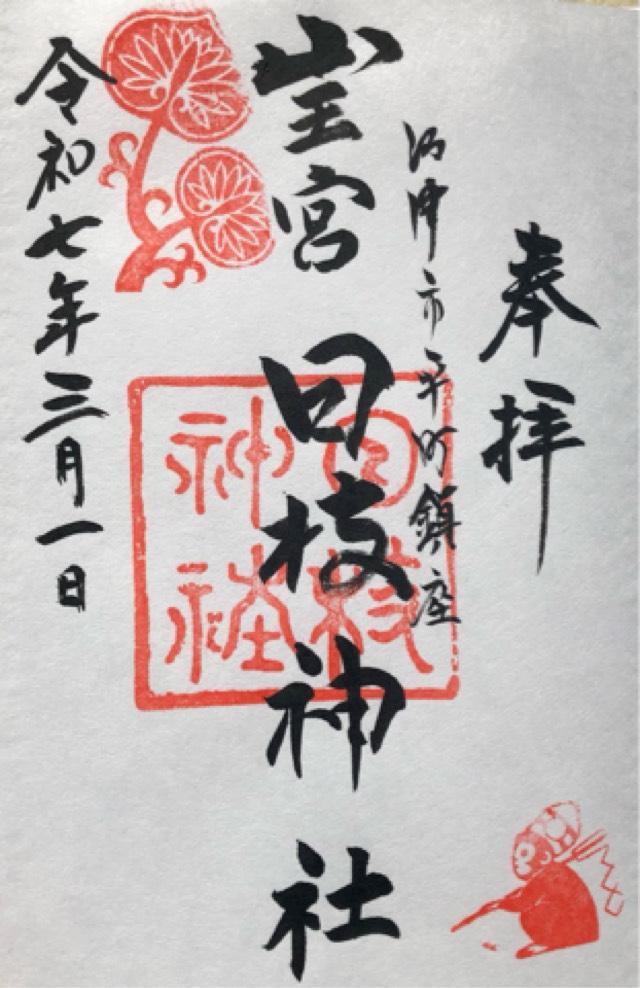 奉拝
沼津市平町鎮座
山王宮 日枝神社
日枝
神社
令和七年三月一日